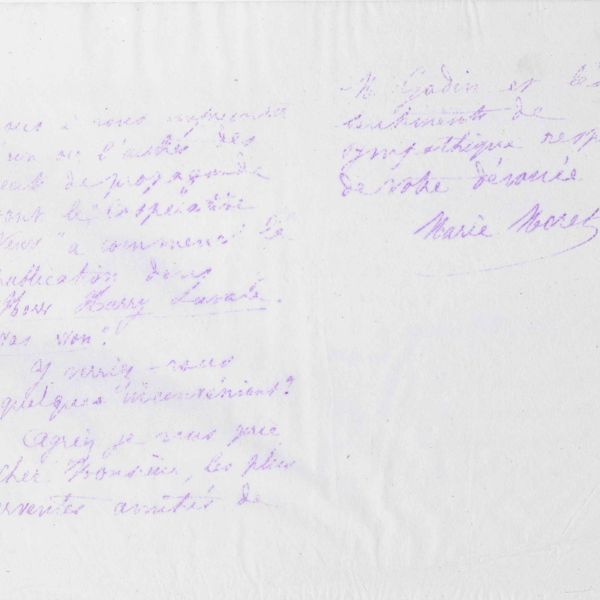 à vous
l'autre des
de propagande
dont le Coopérative
News" a commencé la
publication dans
How Harry Lavade
was won".
Y verriez-vous
quelques inconvénients?
Agréez je vous prie
cher Monsieur, les plus
ferventes amitiés de
M. Godin et les
sentiments de
sympathique resp
de votre dévouée
Marie Moret